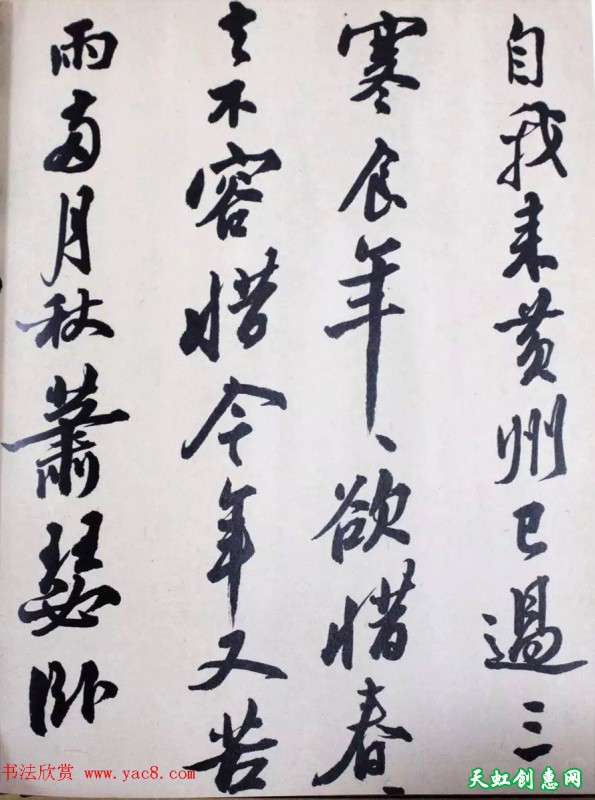 自我来黄州已過三
寒食年、欲惜春、
去不容惜今年又苦
雨两月秋蕭瑟卧
书法欣赏 www.yac8.com
天虹创惠网